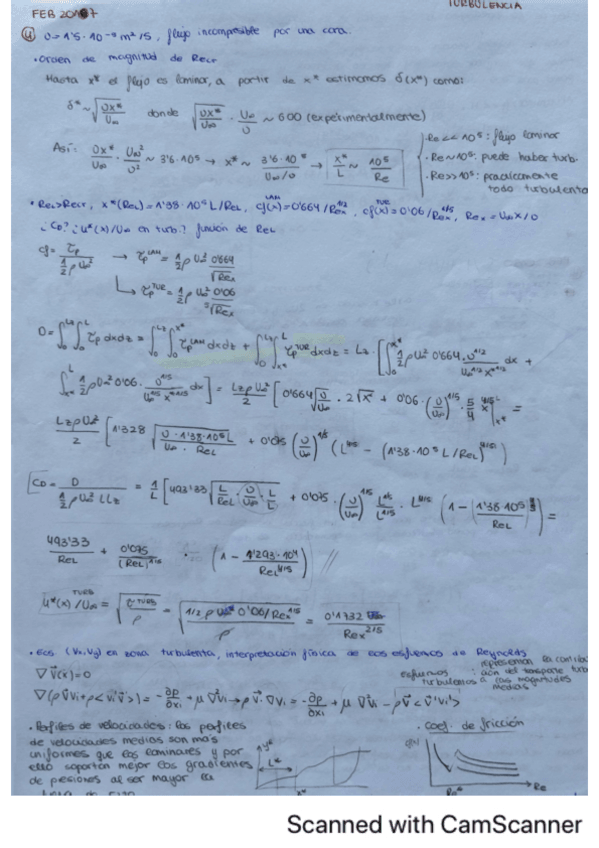 FEB 2017
TURBULENCIA
4 υ = 1'5·10⁻⁵ m²/s, flujo incompresible por una cara.
• Orden de magnitud de Recr
Hasta x* el flujo es laminar, a partir de x* estimamos δ(x*) como:
δ* ~ √(υx*/U∞) donde √(υx*/U∞) · U∞/υ ~ 600 (experimentalmente)
Así: υx*/U∞ · U∞²/υ² ~ 3'6·10⁵ → x* ~ 3'6·10⁵/(U∞/υ) → x*/L ~ 10⁵/Re
• Re << 10⁵: flujo laminar
• Re ~ 10⁵: puede haber turb.
• Re >> 10⁵: practicamente todo turbulento
• ReL > Recr, x*(ReL) = 1'38·10⁵ L/ReL, cf(x) LAM = 0'664/Rex^1/2, cf(x) TUR = 0'06/Rex^1/5, Rex = U∞x/υ
¿CD? ¿u*(x)/U∞ en turb.? función de ReL
cf = τp / (½ρU∞²) → τp LAM = ½ρU∞² 0'664/√Rex
↳ τp TUR = ½ρU∞² 0'06/⁵√Rex
D = ∫₀^L ∫₀^L τp dxdz = ∫₀^L ∫₀^x* τp LAM dxdz + ∫₀^L ∫x*^L τp TUR dxdz = Lz · [∫₀^x* ½ρU∞² 0'664 · υ^1/2 / (U∞^1/2 x^1/2) dx +
∫x*^L ½ρU∞² 0'06 · υ^1/5 / (U∞^1/5 x^1/5) dx] = LzρU∞²/2 [0'664 √(υ/U∞) · 2√x* + 0'06 · (υ/U∞)^1/5 · 5/4 x^4/5 |x*^L =
LzρU∞²/2 [1'328 √(υ·1'38·10⁵L / (U∞·ReL)) + 0'075 (υ/U∞)^1/5 (L^4/5 − (1'38·10⁵ L/ReL)^4/5)
CD = D / (½ρU∞² LLz) = 1/L [493'33 √(L/ReL · υ/U∞ · L/L) + 0'075 · (υ/U∞)^1/5 L^1/5/L^1/5 · L^4/5 (1 − (1'38·10⁵/ReL)^4/5) =
493'33/ReL + 0'075/(ReL)^1/5 · (1 − 1'293·10⁴/ReL^4/5) //
u*(x) TURB /U∞ = √(τ TURB/ρ) = √(1/2 ρ U∞² 0'06/Rex^1/5 / ρ) = 0'1732 / Rex^2/5
• Ecs (Vx,Vy) en zona turbulenta, interpretación física de los esfuerzos de Reynolds
∇V̄(x) = 0
esfuerzos: representan la contribución del trasporte turbulento a las magnitudes medias
∇(ρV̄Vi + ρ<V'iV'>) = −∂p/∂xi + μ∇²Vi → ρV̄·∇Vi = −∂p/∂xi + μ∇²Vi − ρ∇<V'Vi'>
• Perfiles de velocidades: los perfiles
de velocidades medias son más
uniformes que los laminares y por
ello soportan mejor los gradientes
de presiones al ser mayor la
• Coef. de fricción
L*
x*
Re
Scanned with CamScanner